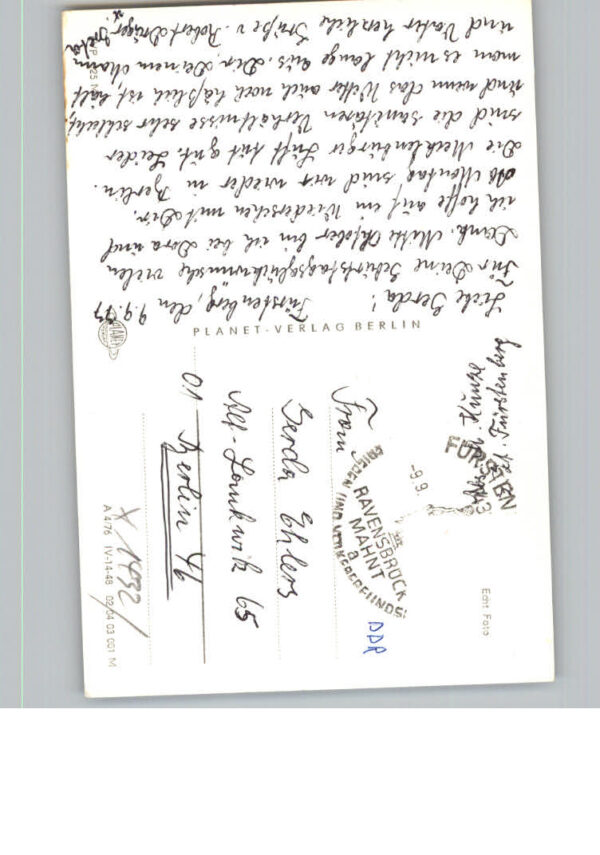 Liebe Gerda! Fürstenberg, den 9.9.77
Für Deine Geburtstagsglückwünsche vielen
Dank. Mitte Oktober bin ich bei Dora und
ich hoffe auf ein Wiedersehen mit Dir.
Ab Montag sind wir wieder in Berlin.
Die Mecklenburger Luft tut gut. Leider
sind die sanitären Verhältnisse sehr schlecht,
und wenn das Wetter auch noch häßlich ist, hält
man es nicht lange aus. Dir, Deinem Mann
und Vater herzliche Grüße v. Robert
PLANET-VERLAG BERLIN
PLANET
Fürstenberg
FÜRSTEN
-9.9.
RAVENSBRÜCK
MAHNT
FRIEDEN UND VÖLKERFREUNDS
DDR
Frau
Gerda Ehlers
Alt-Lankwitz 65
01 Berlin 46
Echt Foto
1432/
A 4/76 IV-14-48 02 04 03 001 M